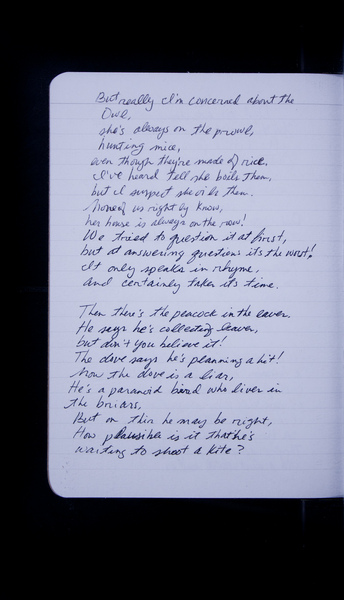 But really I'm concerned about the
Owl,
she's always on the prowl,
hunting mice,
even though they're made of rice.
I've heard tell she boils them,
but I suspect she oils them.
None of us rightly know,
her house is always on the row!
We tried to question it at first,
but at answering questions it's the worst!
It only speaks in rhyme,
and certainly takes its time.
Then there's the peacock in the eaves.
He says he's collecting leaves,
but don't you believe it!
The dove says he's planning a hit!
Now the dove is a liar,
He's a paranoid bird who lives in
the briars,
But on this he may be right,
How plausible is it that he's
waiting to shoot a kite?